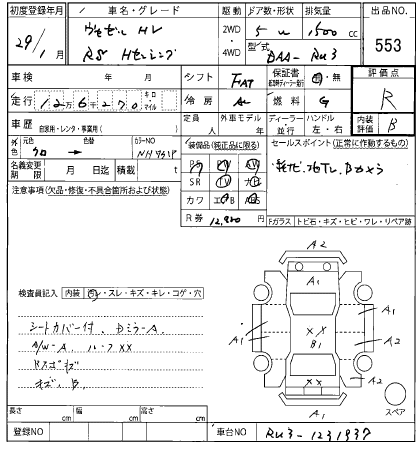 初度登録年月 車名・グレード 駆動 ドア数・形状 排気量 出品NO.
29年 1月 ヴェゼル HV 2WD 5W 1500cc 553
RS Hセンシング 4WD 型式 DAA-RU3
車検 年 月 シフト FAT 保証書 有・無 評価点 R
走行 12万6千270 キロ マイル 冷房 燃料 G
車歴 自家用・レンタ・事業用( ) 定員 人 外車モデル 年 ディーラー 並行 ハンドル 左・右 内装評価 B
外色 元色 クロ → 色替 カラーNO NH731P 装備品(純正品に限る) セールスポイント(正常に作動するもの)
名義変更期限 月 日迄 積載 t PS PW AW
注意事項(欠品・修復・不具合箇所および状態) SR TV ナビ ナビ、フルTV、Bカメラ
カワ エアB
R券 12,920 Fガラス トビ石・キズ・ヒビ・ワレ・リペア跡
検査員記入 内装 ヨゴレ・スレ・キズ・キレ・コゲ・穴
シートカバー付、Dミラ-A、
A/W-A、ルーフXX
キズ、B、
A2
A1
A1
A1
XX
B1
A2
XX
A2
A1
スペア
長さ cm 幅 cm 高さ cm
登録NO 車台NO RU3-1231937